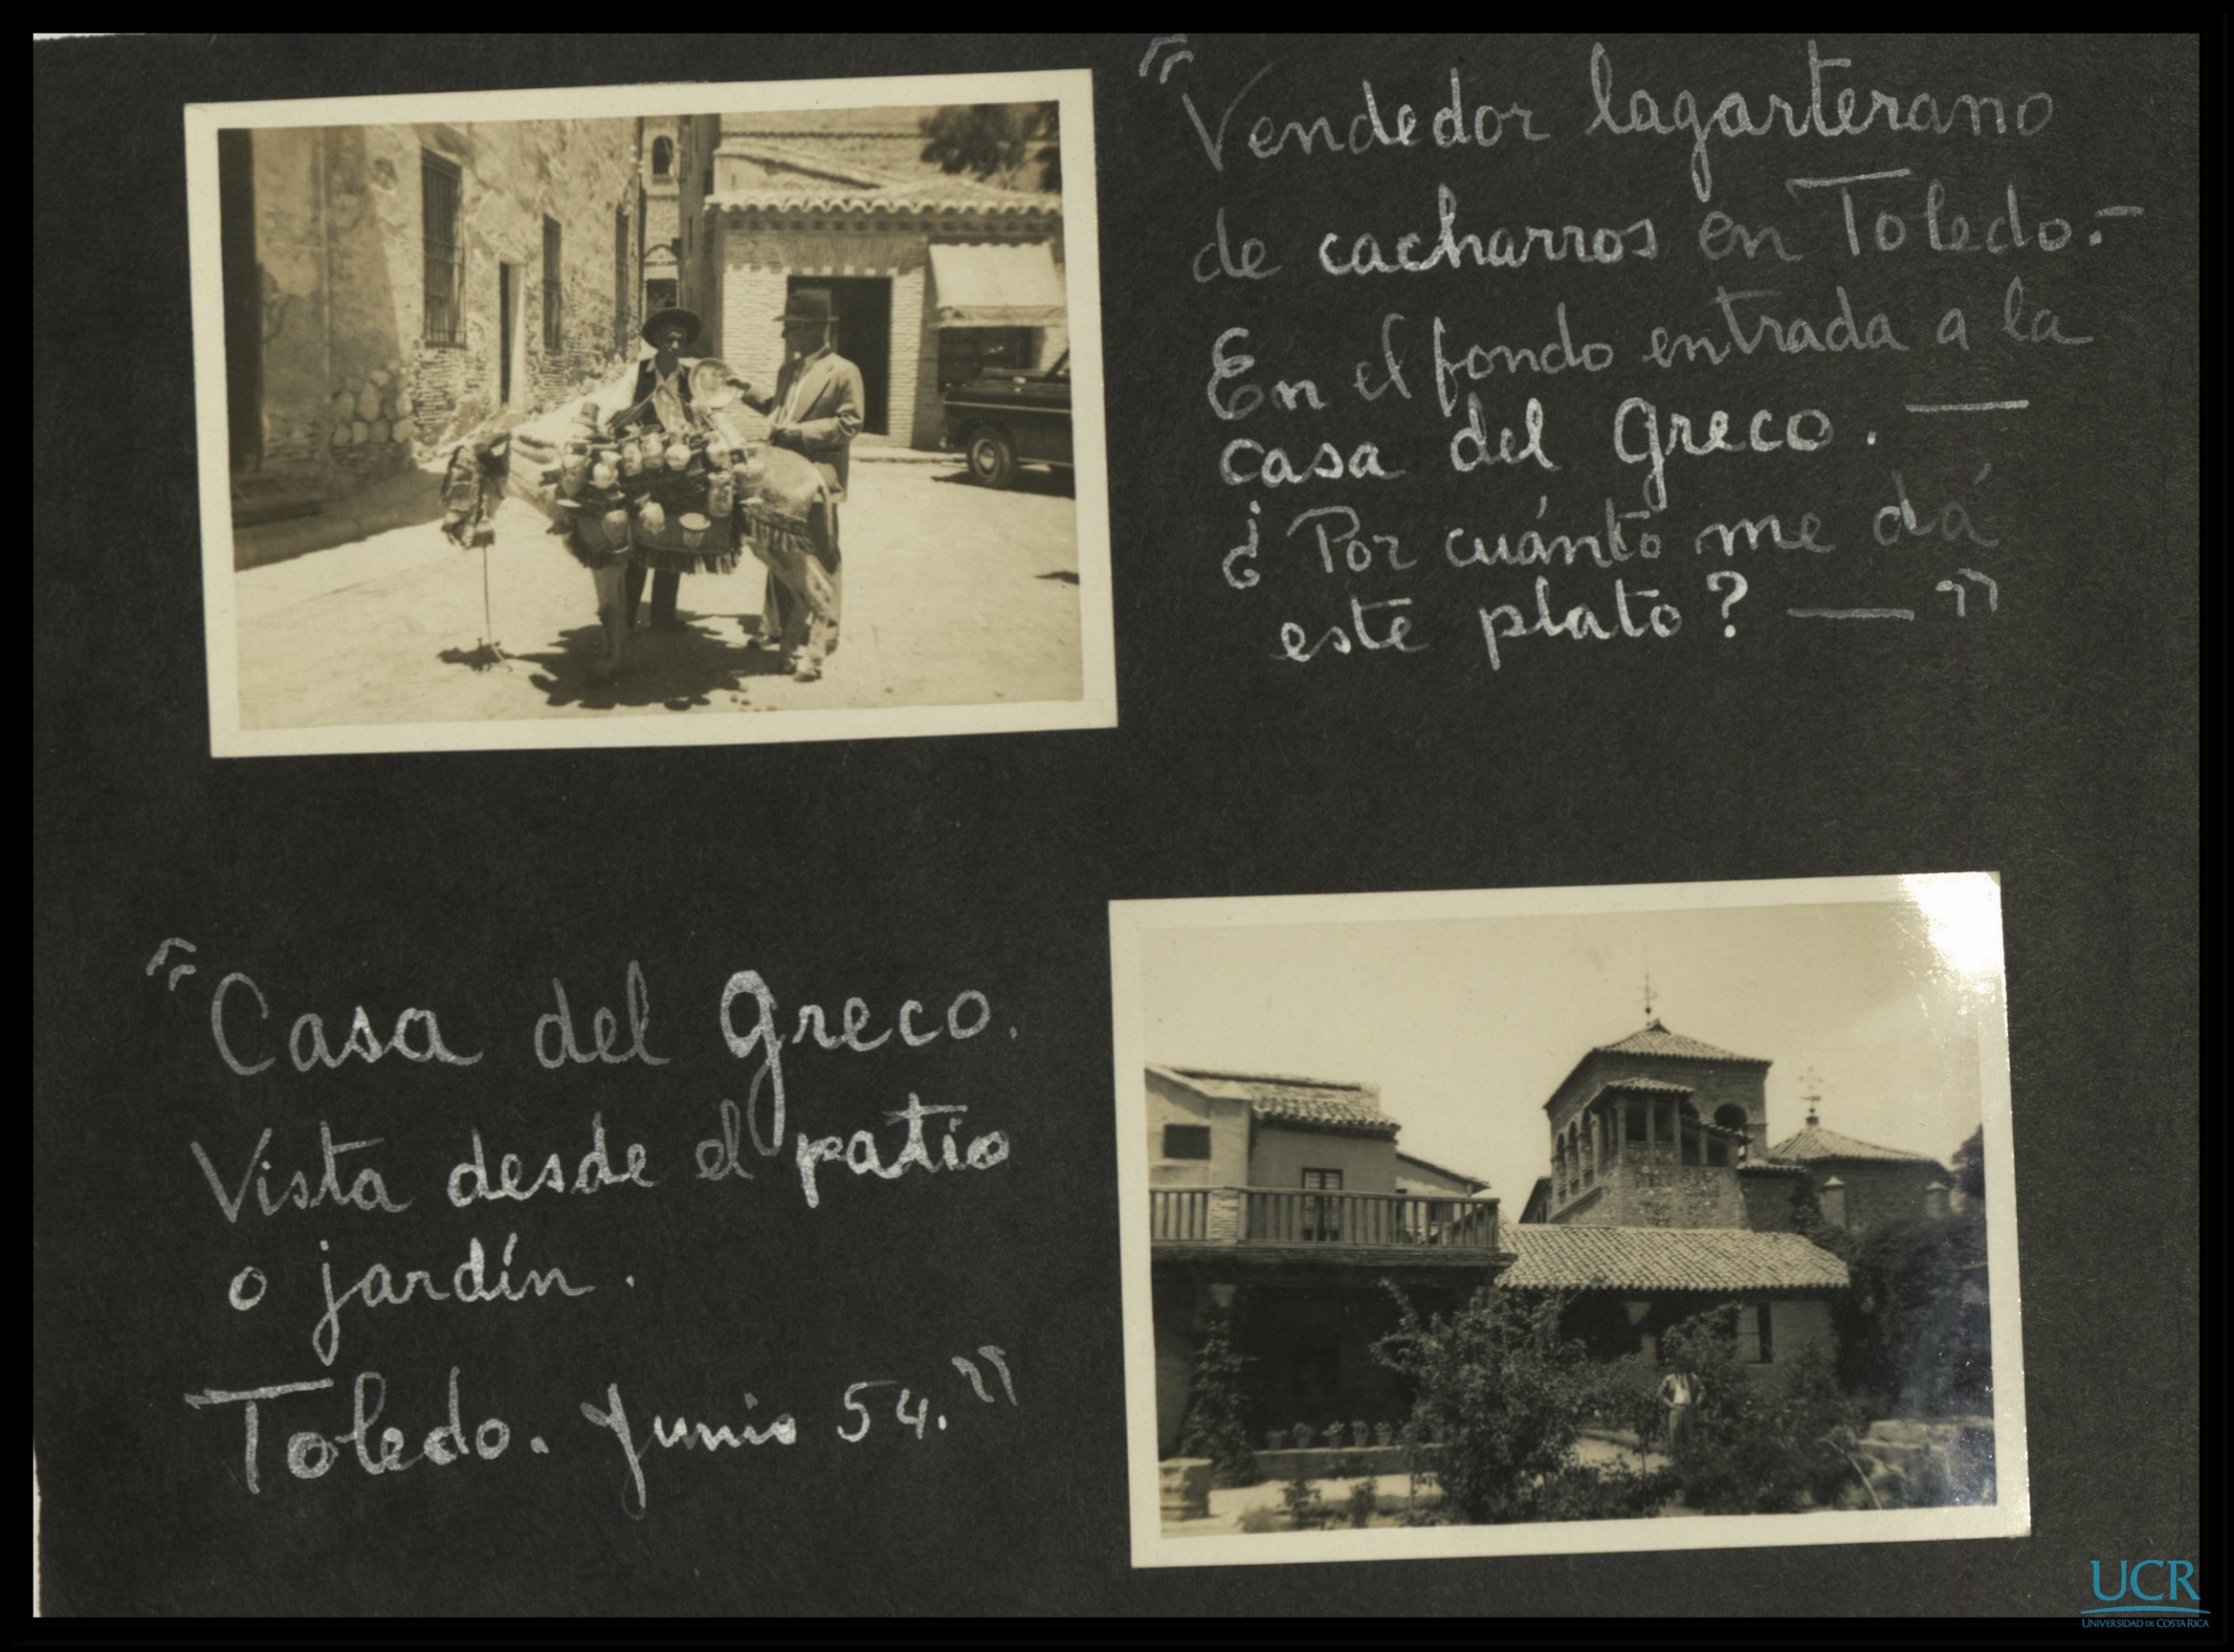 "Vendedor lagarterano
de cacharros en Toledo.-
En el fondo entrada a la
casa del Greco. —
¿Por cuánto me dá
este plato? — "
"Casa del Greco.
Vista desde el patio
o jardín.
Toledo. Junio 54."
UCR
UNIVERSIDAD DE COSTA RICA